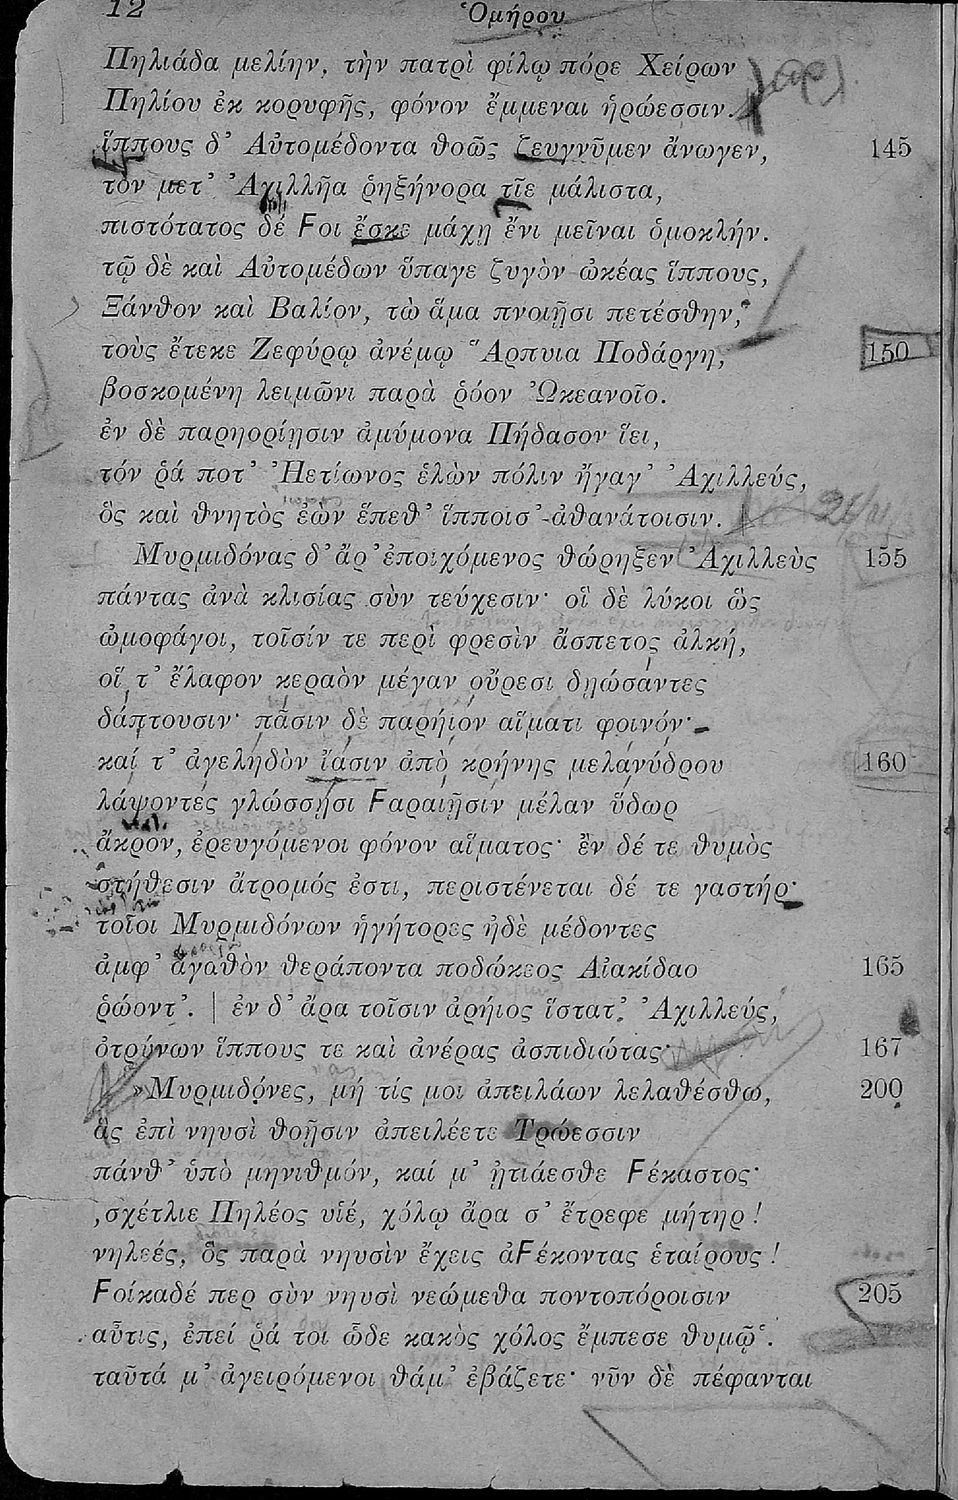 12
Ὁμήρου
Πηλιάδα μελίην, τὴν πατρὶ φίλῳ πόρε Χείρων
Πηλίου ἐκ κορυφῆς, φόνον ἔμμεναι ἡρώεσσιν.
ἵππους δ’ Αὐτομέδοντα θοῶς ζευγνῦμεν ἄνωγεν, 145
τὸν μετ’ Ἀχιλλῆα ῥηξήνορα τῖε μάλιστα,
πιστότατος δέ Ϝοι ἔσκε μάχῃ ἔνι μεῖναι ὁμοκλήν.
τῷ δὲ καὶ Αὐτομέδων ὕπαγε ζυγὸν ὠκέας ἵππους,
Ξάνθον καὶ Βαλίον, τὼ ἅμα πνοιῇσι πετέσθην,
τοὺς ἔτεκε Ζεφύρῳ ἀνέμῳ Ἅρπυια Ποδάργη, 150
βοσκομένη λειμῶνι παρὰ ῥόον Ὠκεανοῖο.
ἐν δὲ παρηορίῃσιν ἀμύμονα Πήδασον ἵει,
τόν ῥά ποτ’ Ἠετίωνος ἑλὼν πόλιν ἤγαγ’ Ἀχιλλεύς,
ὃς καὶ θνητὸς ἐὼν ἕπεθ’ ἵπποισ’ ἀθανάτοισιν.
Μυρμιδόνας δ’ ἄρ’ ἐποιχόμενος θώρηξεν Ἀχιλλεὺς 155
πάντας ἀνὰ κλισίας σὺν τεύχεσιν· οἳ δὲ λύκοι ὣς
ὠμοφάγοι, τοῖσίν τε περὶ φρεσὶν ἄσπετος ἀλκή,
οἵ τ’ ἔλαφον κεραὸν μέγαν οὔρεσι δῃώσαντες
δάπτουσιν· πᾶσιν δὲ παρήϊον αἵματι φοινόν·
καί τ’ ἀγεληδὸν ἴασιν ἀπὸ κρήνης μελανύδρου 160
λάψοντες γλώσσῃσι Ϝαραιῇσιν μέλαν ὕδωρ
ἄκρον, ἐρευγόμενοι φόνον αἵματος· ἐν δέ τε θυμὸς
στήθεσιν ἄτρομός ἐστι, περιστένεται δέ τε γαστήρ·
τοῖοι Μυρμιδόνων ἡγήτορες ἠδὲ μέδοντες
ἀμφ’ ἀγαθὸν θεράποντα ποδώκεος Αἰακίδαο 165
ῥώοντ’. | ἐν δ’ ἄρα τοῖσιν ἀρήιος ἵστατ’ Ἀχιλλεύς,
ὀτρύνων ἵππους τε καὶ ἀνέρας ἀσπιδιώτας· 167
»Μυρμιδόνες, μή τίς μοι ἀπειλάων λελαθέσθω, 200
ἃς ἐπὶ νηυσὶ θοῇσιν ἀπειλέετε Τρώεσσιν
πάνθ’ ὑπὸ μηνιθμόν, καί μ’ ᾐτιάεσθε Ϝέκαστος·
‚σχέτλιε Πηλέος υἱέ, χόλῳ ἄρα σ’ ἔτρεφε μήτηρ!
νηλεές, ὃς παρὰ νηυσὶν ἔχεις ἀϜέκοντας ἑταίρους!
Ϝοίκαδέ περ σὺν νηυσὶ νεώμεθα ποντοπόροισιν 205
αὖτις, ἐπεί ῥά τοι ὧδε κακὸς χόλος ἔμπεσε θυμῷ‘.
ταῦτά μ’ ἀγειρόμενοι θάμ’ ἐβάζετε· νῦν δὲ πέφανται